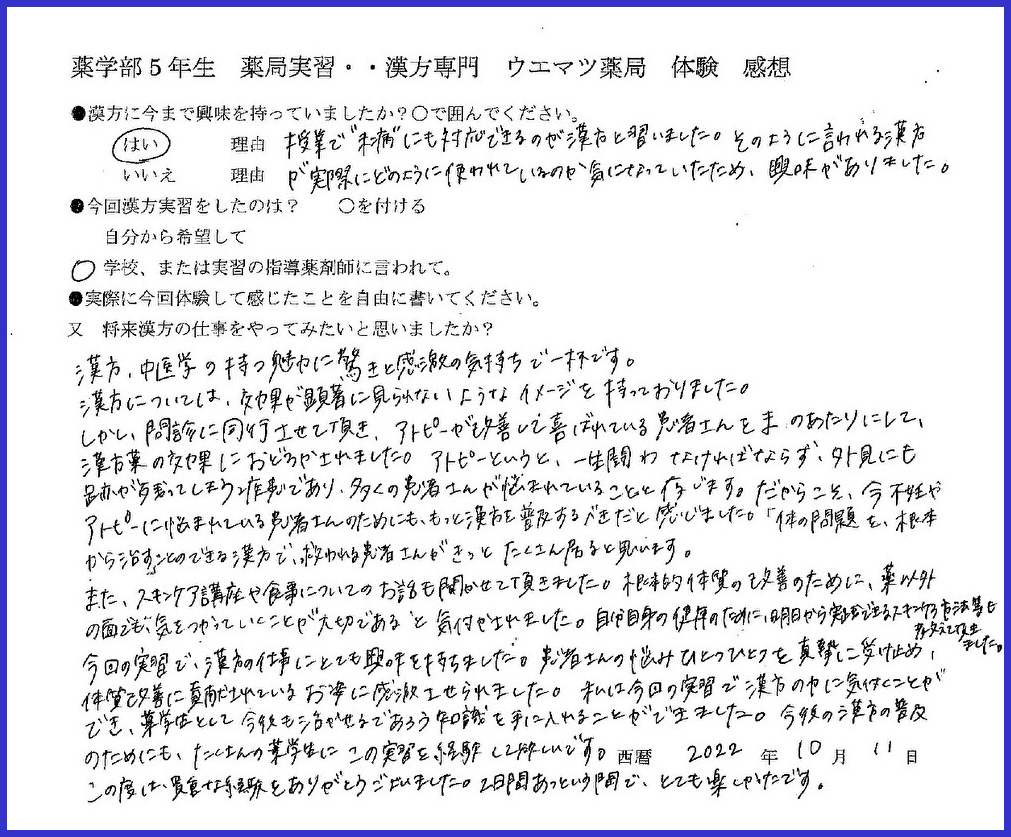 薬学部５年生　薬局実習・・漢方専門　ウエマツ薬局　体験　感想
●漢方に今まで興味を持っていましたか？○で囲んでください。
はい　理由　授業で"未病"にも対応できるのが漢方と習いました。そのように言われる漢方
いいえ　理由　が実際にどのように使われているのか気になっていたため、興味がありました。
●今回漢方実習をしたのは？　○を付ける
自分から希望して
○学校、または実習の指導薬剤師に言われて。
●実際に今回体験して感じたことを自由に書いてください。
又　将来漢方の仕事をやってみたいと思いましたか？
漢方、中医学の持つ魅力に驚きと感激の気持ちで一杯です。
漢方については、効果が顕著に見られないようなイメージを持っておりました。
しかし、問診に同行させて頂き、アトピーが改善して喜ばれている患者さんをまのあたりにして、
漢方薬の効果におどろかされました。アトピーというと、一生関わなければならず、外見にも
跡が残ってしまう疾患であり、多くの患者さんが悩まれていることと存じます。だからこそ、今不妊や
アトピーに悩まれている患者さんのためにも、もっと漢方を普及するべきだと感じました。「体の問題を、根本
から治すことのできる漢方で、救われる患者さんがきっとたくさん居ると思います。
また、スキンケア講座や食事についてのお話も聞かせて頂きました。根本的体質の改善のために、薬以外
の面でも、気をつかっていくことが大切であると気付かされました。自分自身の健康のために、明日から実践できるスキンケア方法等も
教えて頂きました。
今回の実習で、漢方の仕事にとても興味を持ちました。患者さんの悩みひとつひとつを真摯に受け止め、
体質改善に貢献されているお姿に感激させられました。私は今回の実習で漢方の力に気付くことが
でき、薬学生として今後も活かせるであろう知識を手に入れることができました。今後の漢方の普及
のためにも、たくさんの薬学生にこの実習を経験して欲しいです。西暦　2022　年　10　月　11　日
この度は、貴重な経験をありがとうございました。2日間あっという間で、とても楽しかったです。